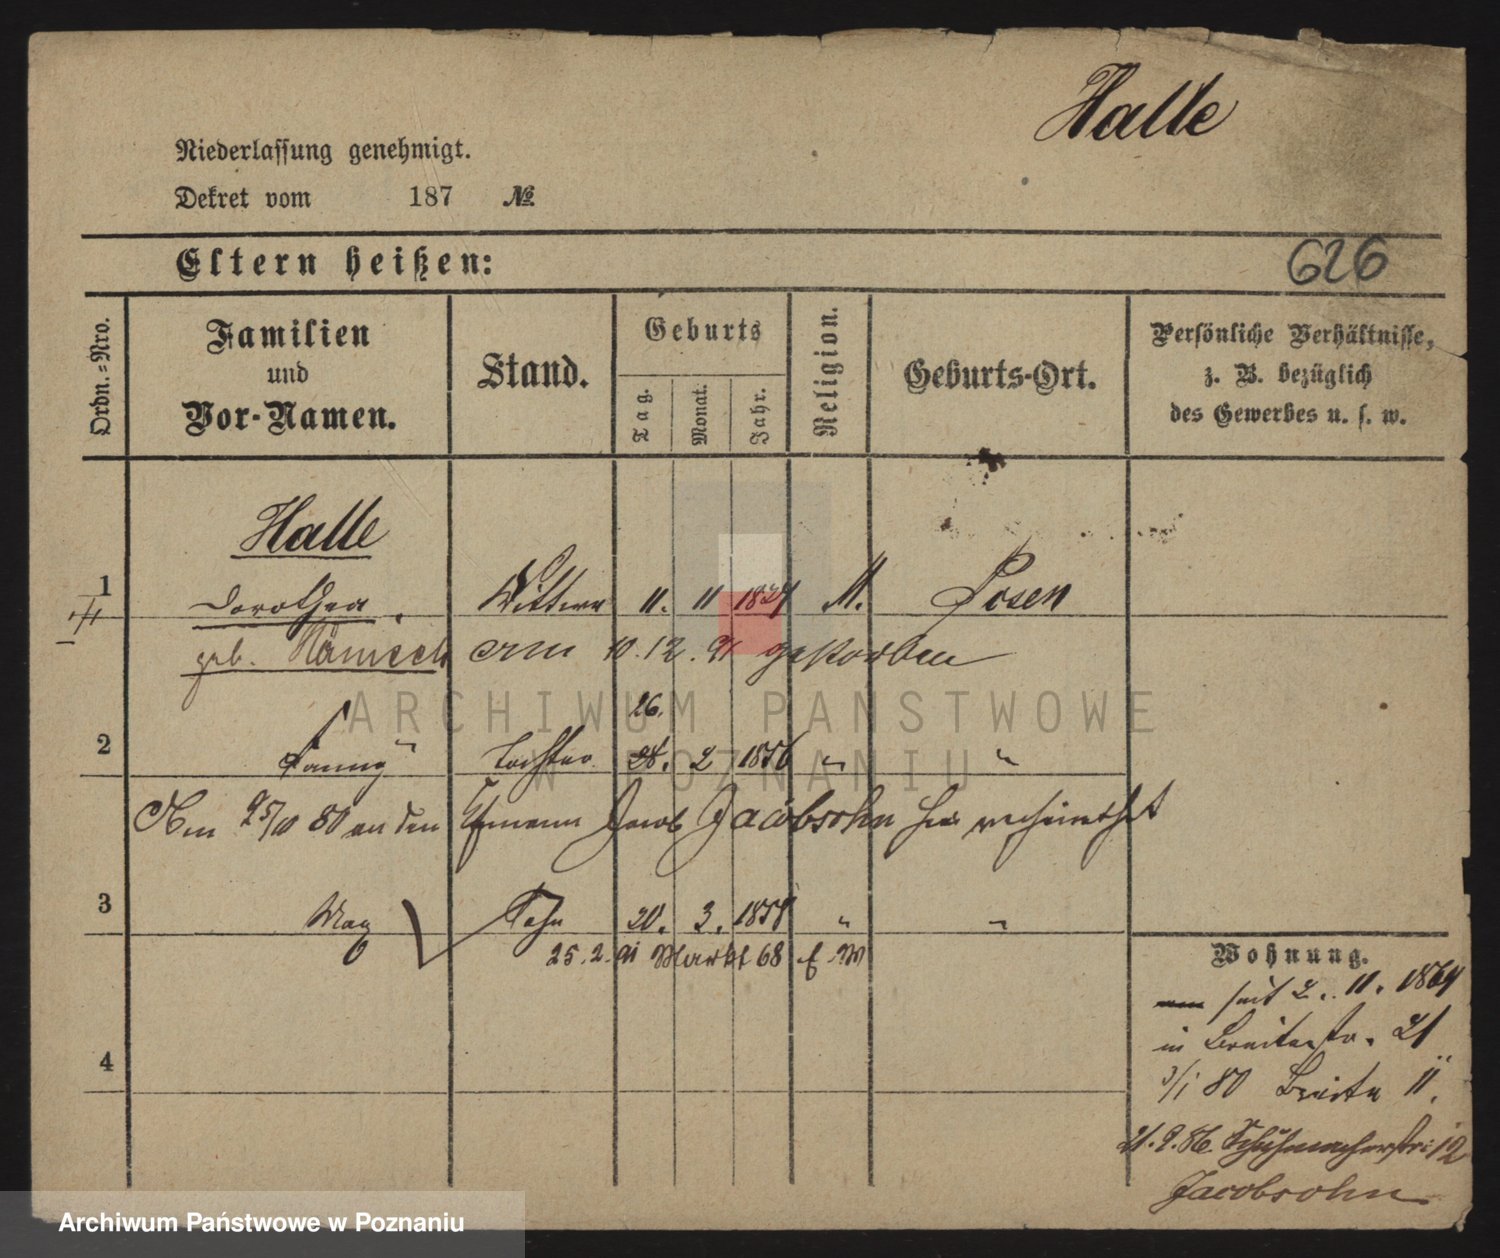 Halle
Niederlassung genehmigt.
Dekret vom 187 №
Eltern heißen:
626
Ordn.=Nro.
Familien
und
Vor-Namen.
Stand.
Geburts
Tag.
Monat.
Jahr.
Religion.
Geburts-Ort.
Persönliche Verhältnisse,
z. B. bezüglich
des Gewerbes u. s. w.
Halle
1 Dorothea, Wittwe 11. 11 M. Posen
geb. am 10.12.91 gestorben
26.
2 Fanny Tochter 24. 2 1856 " "
Am 25/10 80 an den Kfmann Jacob Jacobsohn hier verheirathet
3 Max Sohn 20. 3. 1858 " "
25.2. Markt 68 b. M
4
Wohnung.
seit 2. 11. 1864
in Breitestr. 21
3/1 80 Breite 11.
21.9.86 Schuhmacherstr: 12
Jacobsohn
ARCHIWUM PAŃSTWOWE
W POZNANIU
Archiwum Państwowe w Poznaniu